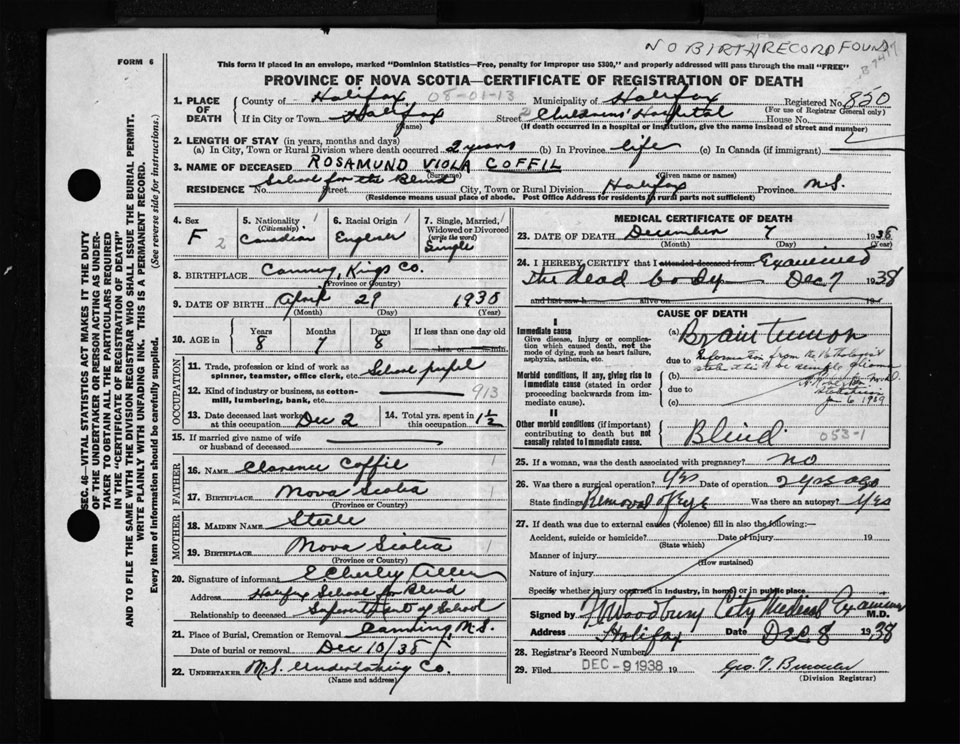 NO BIRTH RECORD FOUND
FORM 6
This form if placed in an envelope, marked "Dominion Statistics—Free, penalty for improper use $300," and properly addressed will pass through the mail "FREE"
PROVINCE OF NOVA SCOTIA—CERTIFICATE OF REGISTRATION OF DEATH
SEC. 46—VITAL STATISTICS ACT MAKES IT THE DUTY
OF THE UNDERTAKER OR PERSON ACTING AS UNDER-
TAKER TO OBTAIN ALL THE PARTICULARS REQUIRED
IN THE "CERTIFICATE OF REGISTRATION OF DEATH"
AND TO FILE THE SAME WITH THE DIVISION REGISTRAR WHO SHALL ISSUE THE BURIAL PERMIT.
WRITE PLAINLY WITH UNFADING INK. THIS IS A PERMANENT RECORD.
Every item of Information should be carefully supplied. (See reverse side for instructions.)
1. PLACE OF DEATH County of Halifax 08-01-13 Municipality of Halifax Registered No. 850
(For use of Registrar General only)
If in City or Town Halifax Street Childrens' Hospital House No.
(Name) (If death occurred in a hospital or institution, give the name instead of street and number)
2. LENGTH OF STAY (in years, months and days)
(a) In City, Town or Rural Division where death occurred 2 years (b) In Province life (c) In Canada (if immigrant)
3. NAME OF DECEASED ROSAMUND VIOLA COFFIL
(Surname) (Given name or names)
RESIDENCE No. School for the Blind Street City, Town or Rural Division Halifax Province N.S.
(Residence means usual place of abode. Post Office Address for residents in rural parts not sufficient)
4. Sex F 2
5. Nationality (Citizenship) Canadian
6. Racial Origin English
7. Single, Married, Widowed or Divorced (write the word) Single
8. BIRTHPLACE Canning, Kings Co.
(Province or Country)
9. DATE OF BIRTH April 29 1930
(Month) (Day) (Year)
10. AGE Years 8 Months 7 Days 8 If less than one day old
hrs. or min.
OCCUPATION
11. Trade, profession or kind of work as spinner, teamster, office clerk, etc. School pupil
12. Kind of industry or business, as cotton-mill, lumbering, bank, etc. 913
13. Date deceased last worked at this occupation Dec 2 14. Total yrs. spent in this occupation 1½
15. If married give name of wife or husband of deceased
FATHER
16. NAME Clarence Coffil
17. BIRTHPLACE Nova Scotia
(Province or Country)
MOTHER
18. MAIDEN NAME Steele
19. BIRTHPLACE Nova Scotia
(Province or Country)
20. Signature of informant Allen
Address Halifax School for Blind
Relationship to deceased Superintendent of School
21. Place of Burial, Cremation or Removal Canning N.S.
Date of burial or removal Dec 10/38
22. UNDERTAKER N.S. Undertaking Co.
(Name and address)
MEDICAL CERTIFICATE OF DEATH
23. DATE OF DEATH December 7 1938
(Month) (Day) (Year)
24. I HEREBY CERTIFY that I attended deceased from Examined
the dead body Dec 7 1938
and last saw h alive on 19
CAUSE OF DEATH
I
Immediate cause
Give disease, injury or complication which caused death, not the mode of dying, such as heart failure, asphyxia, asthenia, etc.
(a) Brain Tumor
due to Information from the Pathologist
Morbid conditions, if any, giving rise to Immediate cause (stated in order proceeding backwards from immediate cause).
(b)
due to
(c)
II
Other morbid conditions (if important) contributing to death but not causally related to immediate cause.
Blind 053-1
25. If a woman, was the death associated with pregnancy? NO
26. Was there a surgical operation? Yes Date of operation 2 yrs ago
State findings Removal of eye Was there an autopsy? Yes
27. If death was due to external causes (violence) fill in also the following:—
Accident, suicide or homicide? Date of injury 19
(State which)
Manner of injury
(How sustained)
Nature of injury
Specify whether injury occurred in Industry, in home or in public place
Signed by Woodbury City Medical Examiner M.D.
Address Halifax Date Dec 8 1938
28. Registrar's Record Number
29. Filed DEC -9 1938 19
(Division Registrar)